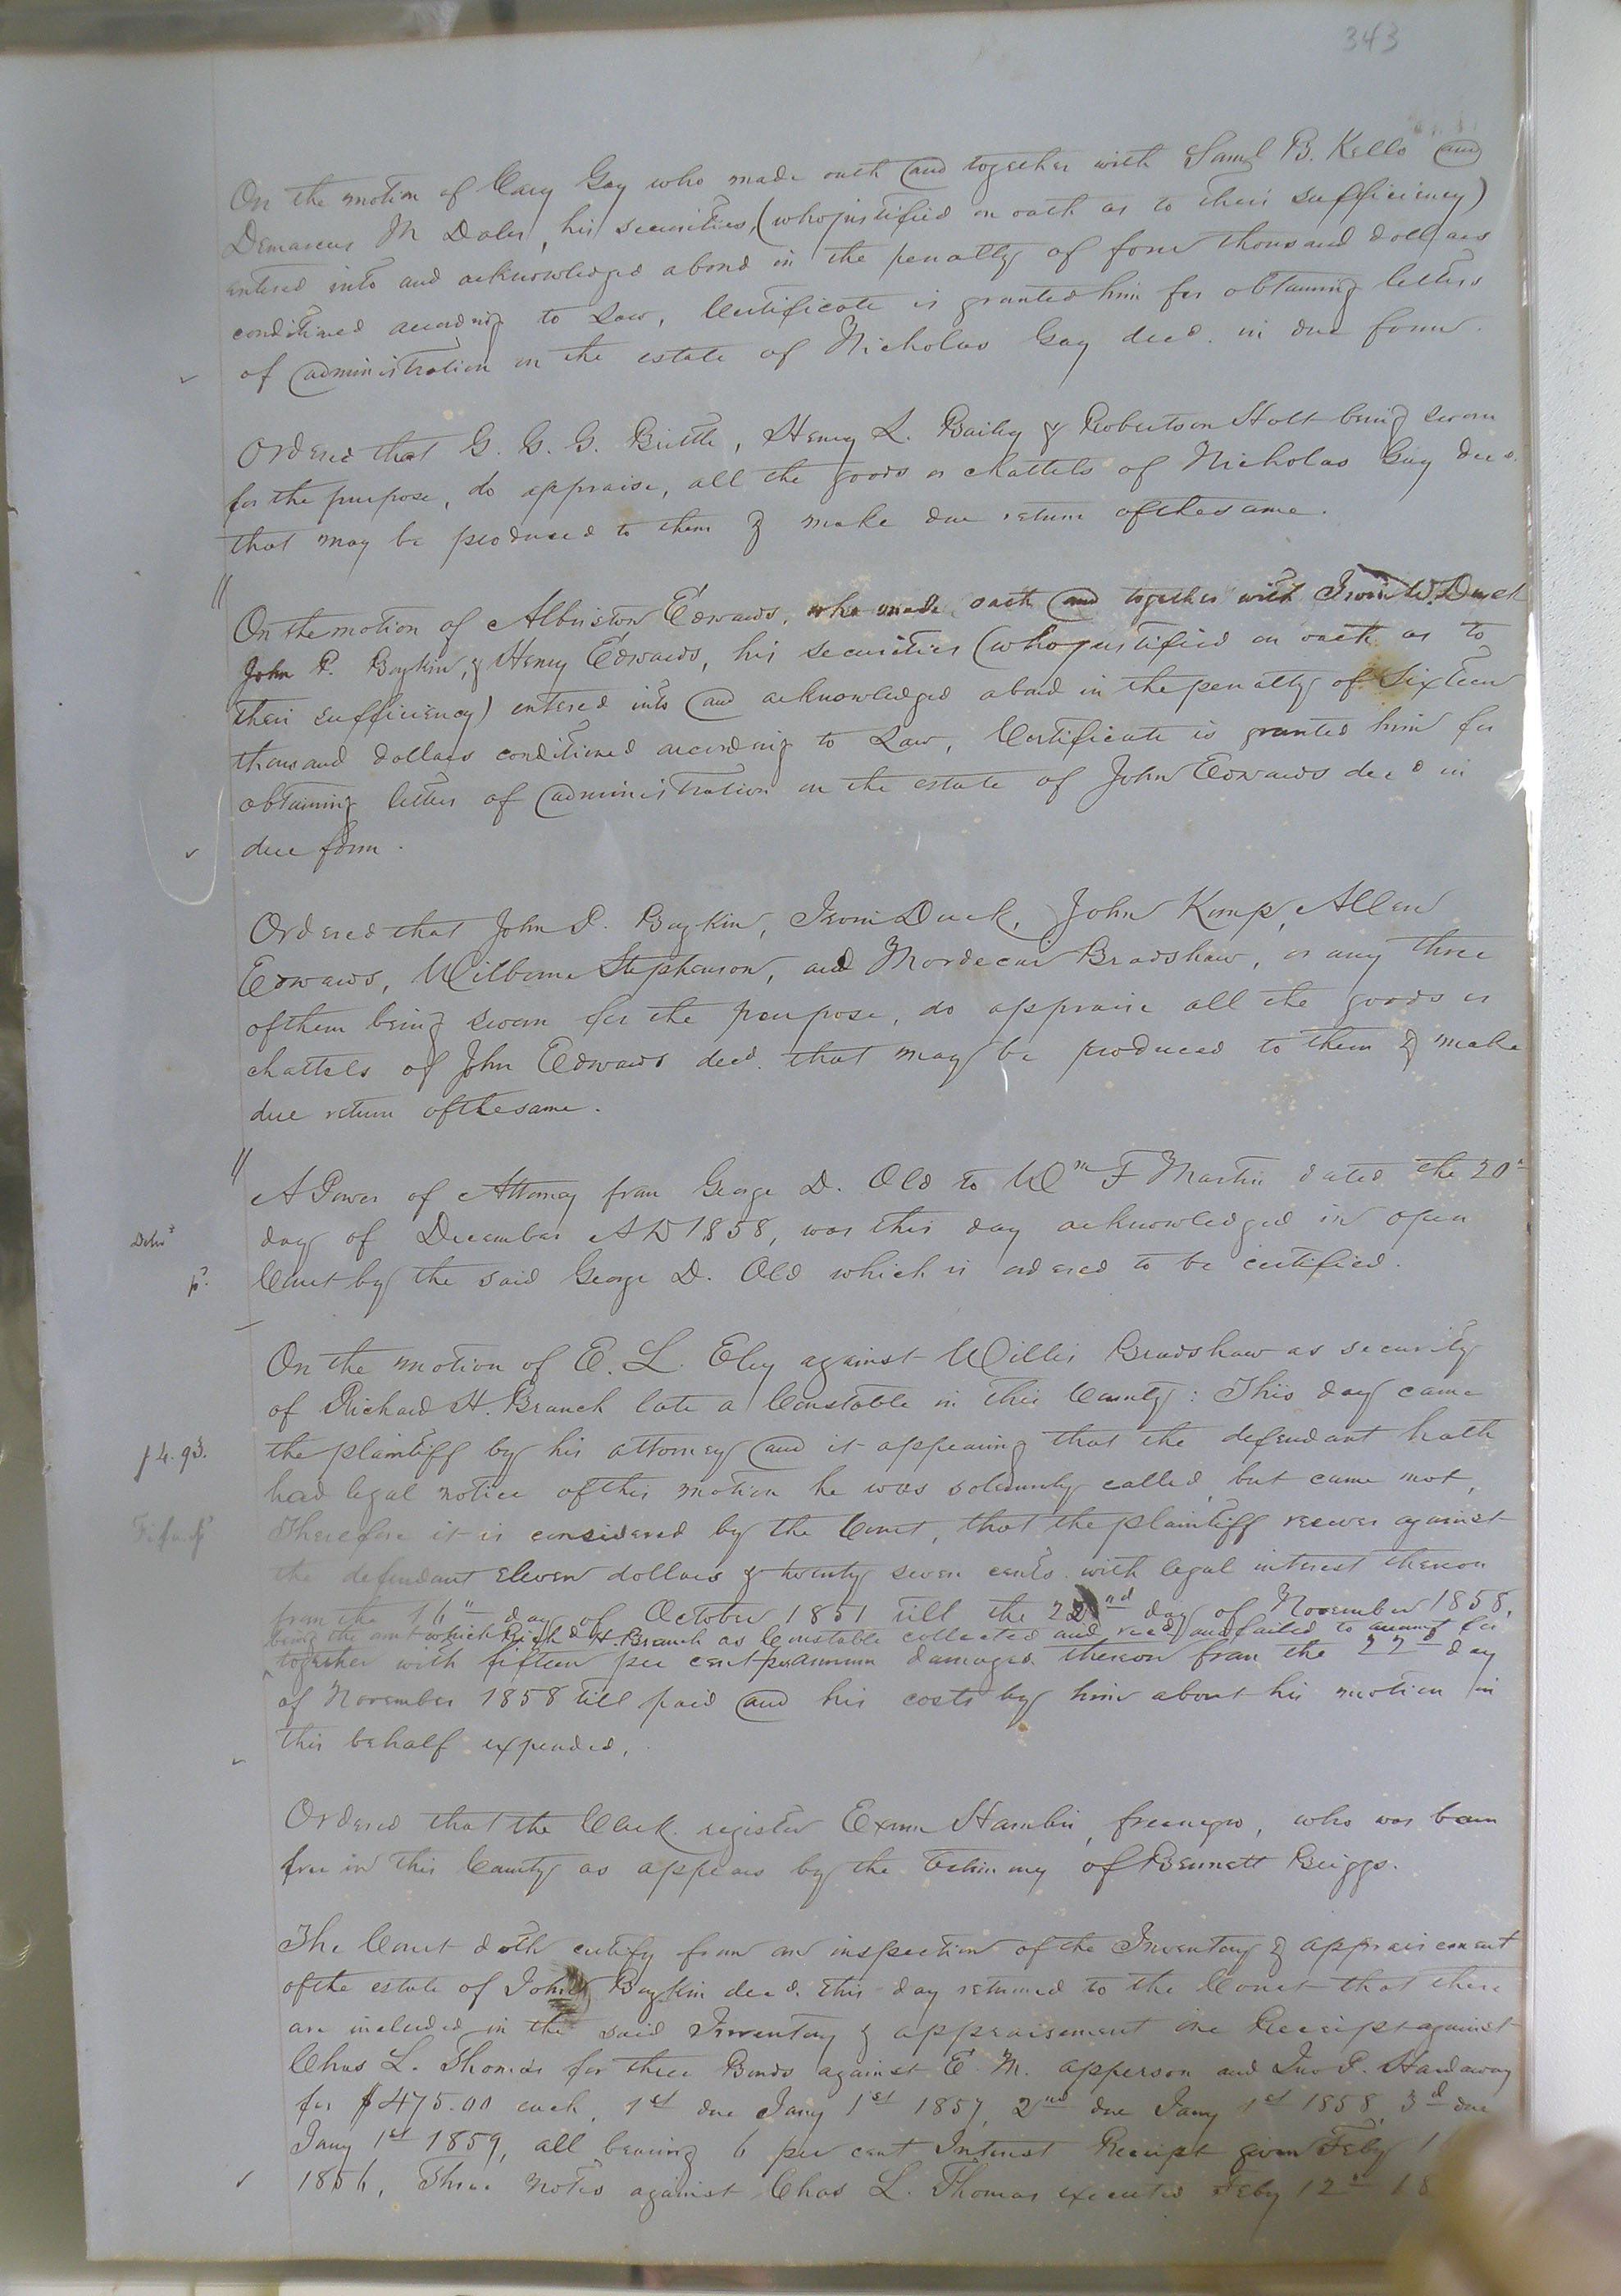 343
On the motion of Cary Gay who made oath and together with Saml B. Kello and
Demarcus M Doles, his securities, (who justified on oath as to their sufficiency)
entered into and acknowledged a bond in the penalty of four thousand dollars
conditioned according to Law, Certificate is granted him for obtaining letters
of administration on the estate of Nicholas Gay decd. in due form.
Ordered that G. G. G. Brittle, Henry L. Bailey & Robertson Holt being sworn
for the purpose, do appraise, all the goods or chattels of Nicholas Gay decd.
that may be produced to them & make due return of the same.
"
On the motion of Albriston Edwards, who made oath and together with Irvin W. Duck
John P. Boykin, & Henry Edwards, his securities (who justified on oath as to
their sufficiency) entered into and acknowledged a bond in the penalty of Sixteen
thousand dollars conditioned according to Law, Certificate is granted him for
obtaining letters of administration on the estate of John Edwards decd in
due form.
Ordered that John P. Boykin, Irvin Duck, John Kemp, Allen
Edwards, Wilborne Stephenson, and Mordecai Bradshaw, or any three
of them being sworn for the purpose, do appraise all the goods or
chattels of John Edwards decd. that may be produced to them & make
due return of the same.
"
A Power of Attorney from George D. Old to Wm F Martin dated the 20th
day of December AD 1858, was this day acknowledged in open
Court by the said George D. Old which is ordered to be certified.
On the motion of E. L. Eley against Willis Bradshaw as security
of Richard H. Branch late a Constable in this County: This day came
the plaintiff by his attorney and it appearing that the defendant hath
had legal notice of this motion he was solemnly called, but came not,
Therefore it is considered by the Court, that the plaintiff recover against
the defendant eleven dollars & twenty seven cents with legal interest thereon
from the 16th day of October 1851 till the 22nd day of November 1858,
being the amt which Richd H. Branch as Constable collected and recd and failed to account for
together with fifteen per cent per annum damages thereon from the 22nd day
of November 1858 till paid and his costs by him about his motion in
this behalf expended.
Ordered that the Clerk register Exum Hamlin, free negro, who was born
free in this County as appears by the testimony of Bennett Briggs.
The Court doth certify from an inspection of the Inventory & appraisement
of the estate of John Boykin decd. this day returned to the Court that there
are included in the said Inventory & appraisement one Receipt against
Chas L. Thomas for three Bonds against E. M. Apperson and Jno P. Hardaway
for $475.00 each, 1st due Jany 1st 1857, 2nd due Jany 1st 1858, 3d due
Jany 1st 1859, all bearing 6 per cent Interest Receipt given Feby 1
1856, Three notes against Chas L. Thomas executed Feby 12th 18